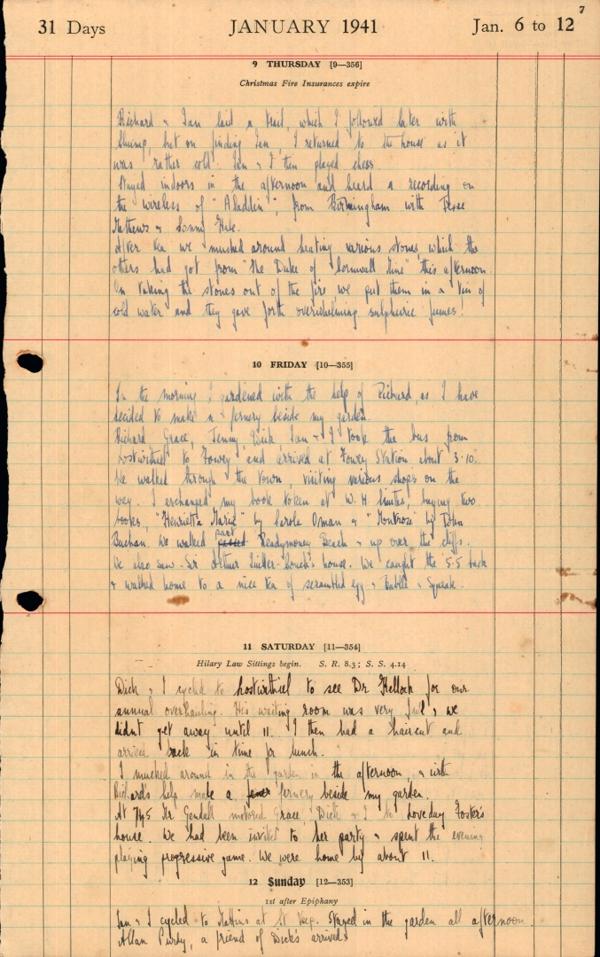 7
31 Days JANUARY 1941 Jan. 6 to 12
9 THURSDAY [9—356]
Christmas Fire Insurances expire
Richard & Ian laid a trail, which I followed later with
but on finding Ian, I returned to the house as it
was rather cold. Ian & I then played chess.
Stayed indoors in the afternoon and heard a recording on
the wireless of "Aladdin", from Birmingham with Jessie
Mathews & Sonny Hale.
After tea we mucked around heating various stones, which the
others had got from "the Duke of Cornwall Mine" this afternoon.
On taking the stones out of the fire we put them in a tin of
cold water and they gave forth overwhelming sulphuric fumes!
10 FRIDAY [10—355]
In the morning I gardened with the help of Richard, as I have
decided to make a fernery beside my garden.
Richard, Grace, Jenny, Dick Ian & I took the bus from
Lostwithiel to Fowey and arrived at Fowey Station about 3.10.
We walked through the town, visiting various shops on the
way. I exchanged my book token at W. H. Smiths, buying two
books, "Henrietta Maria" by Carola Oman & "Montrose" by John
Buchan. We walked past Readymoney Beach & up over the cliffs.
We also saw Sir Arthur Quiller-Couch's house. We caught the 5.5 back
& walked home to a nice tea of scrambled egg & Bubble & Squeak.
11 SATURDAY [11—354]
Hilary Law Sittings begin. S. R. 8.3; S. S. 4.14
Dick & I cycled to Lostwithiel to see Dr. for our
annual overhauling. His waiting room was very full & we
didnt get away until 11. I then had a haircut and
arrived back in time for lunch.
I mucked around in the garden in the afternoon, & with
Richard's help made a fernery beside my garden.
At 7.45 Mr Gendall motored Grace, Dick & I to Loveday Foster's
house. We had been invited to her party & spent the evening
playing progressive game. We were home by about 11.
12 Sunday [12—353]
1st after Epiphany
Ian & I cycled to Mattins at St Veep. Stayed in the garden all afternoon.
Allan Purdy, a friend of Dick's arrived